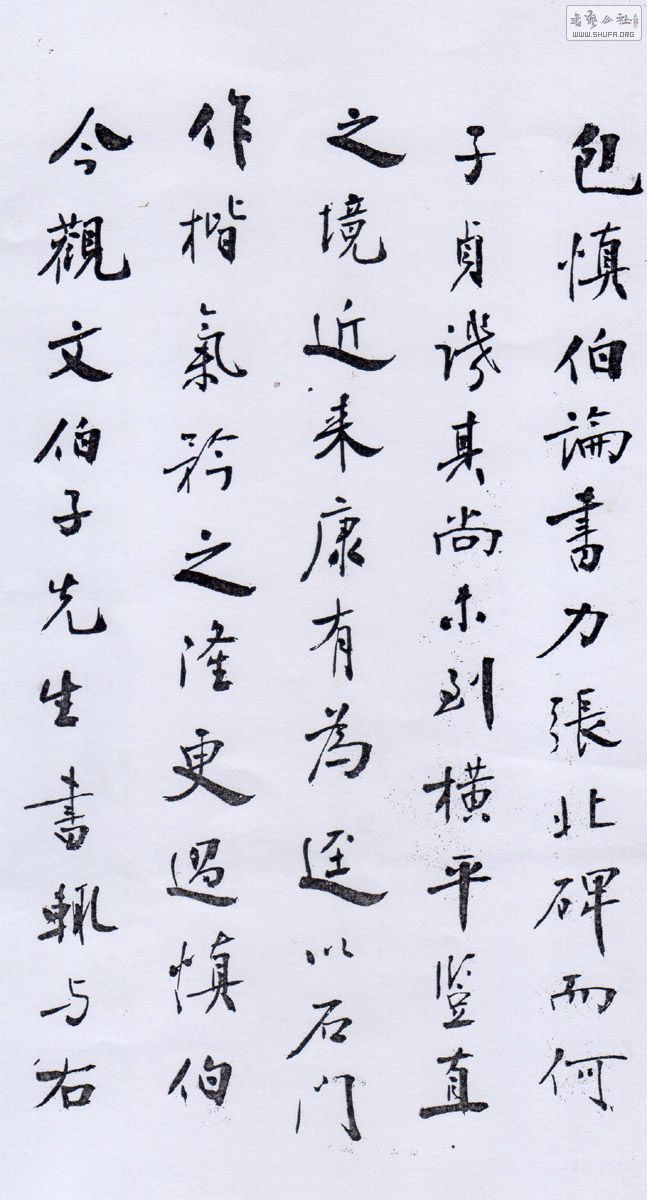 包慎伯論書力張北碑而何
子貞譏其尚未到橫平豎直
之境近来康有為逕以石門
作楷氣矜之隆更過慎伯
今觀文伯子先生書輒与右
書藝公社
WWW.SHUFA.ORG